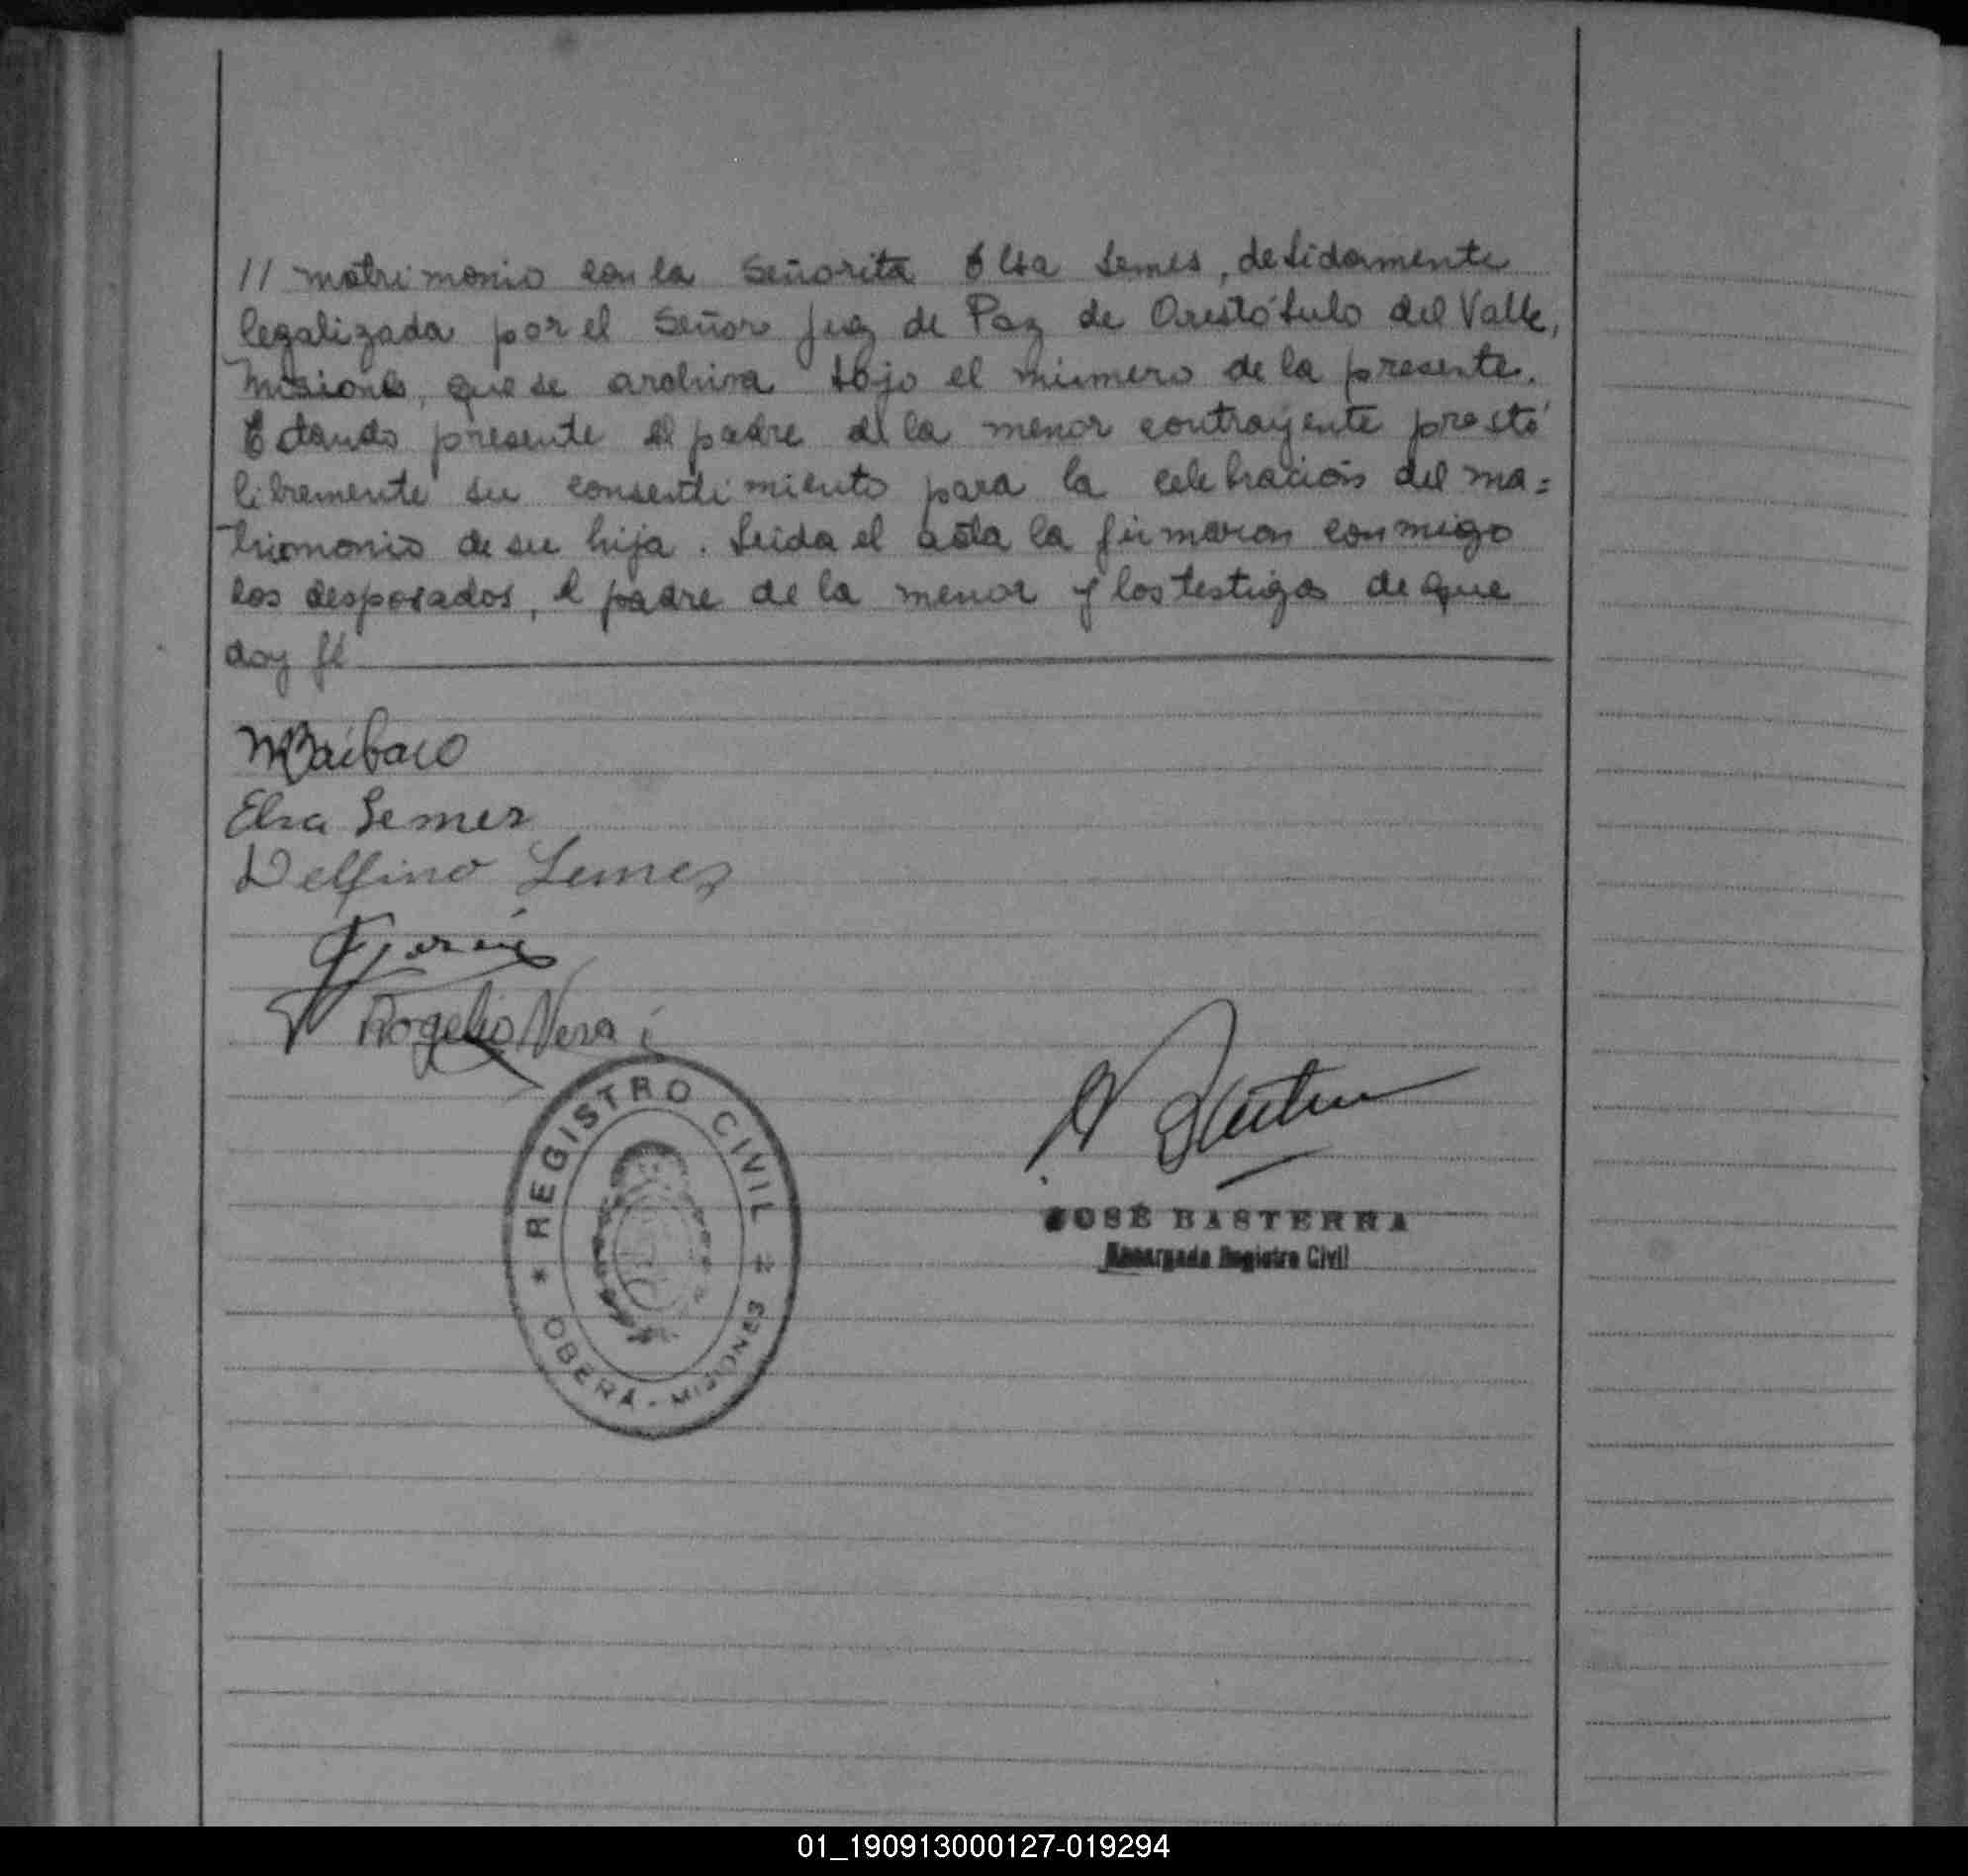 // matrimonio con la Señorita Elsa Lemes, debidamente
legalizada por el Señor Juez de Paz de Aristóbulo del Valle,
Misiones, que se archiva bajo el número de la presente.
Estando presente el padre de la menor contrayente prestó
libremente su consentimiento para la celebración del ma=
trimonio de su hija. Leida el acta la firmaron conmigo
los desposados, el padre de la menor y los testigos de que
doy fé
Elsa Lemes
Delfino Lemes
Rogelio Vera
REGISTRO CIVIL 2
* OBERÁ - MISIONES
JOSÉ BASTERRA
Encargado Registro Civil
01_190913000127-019294